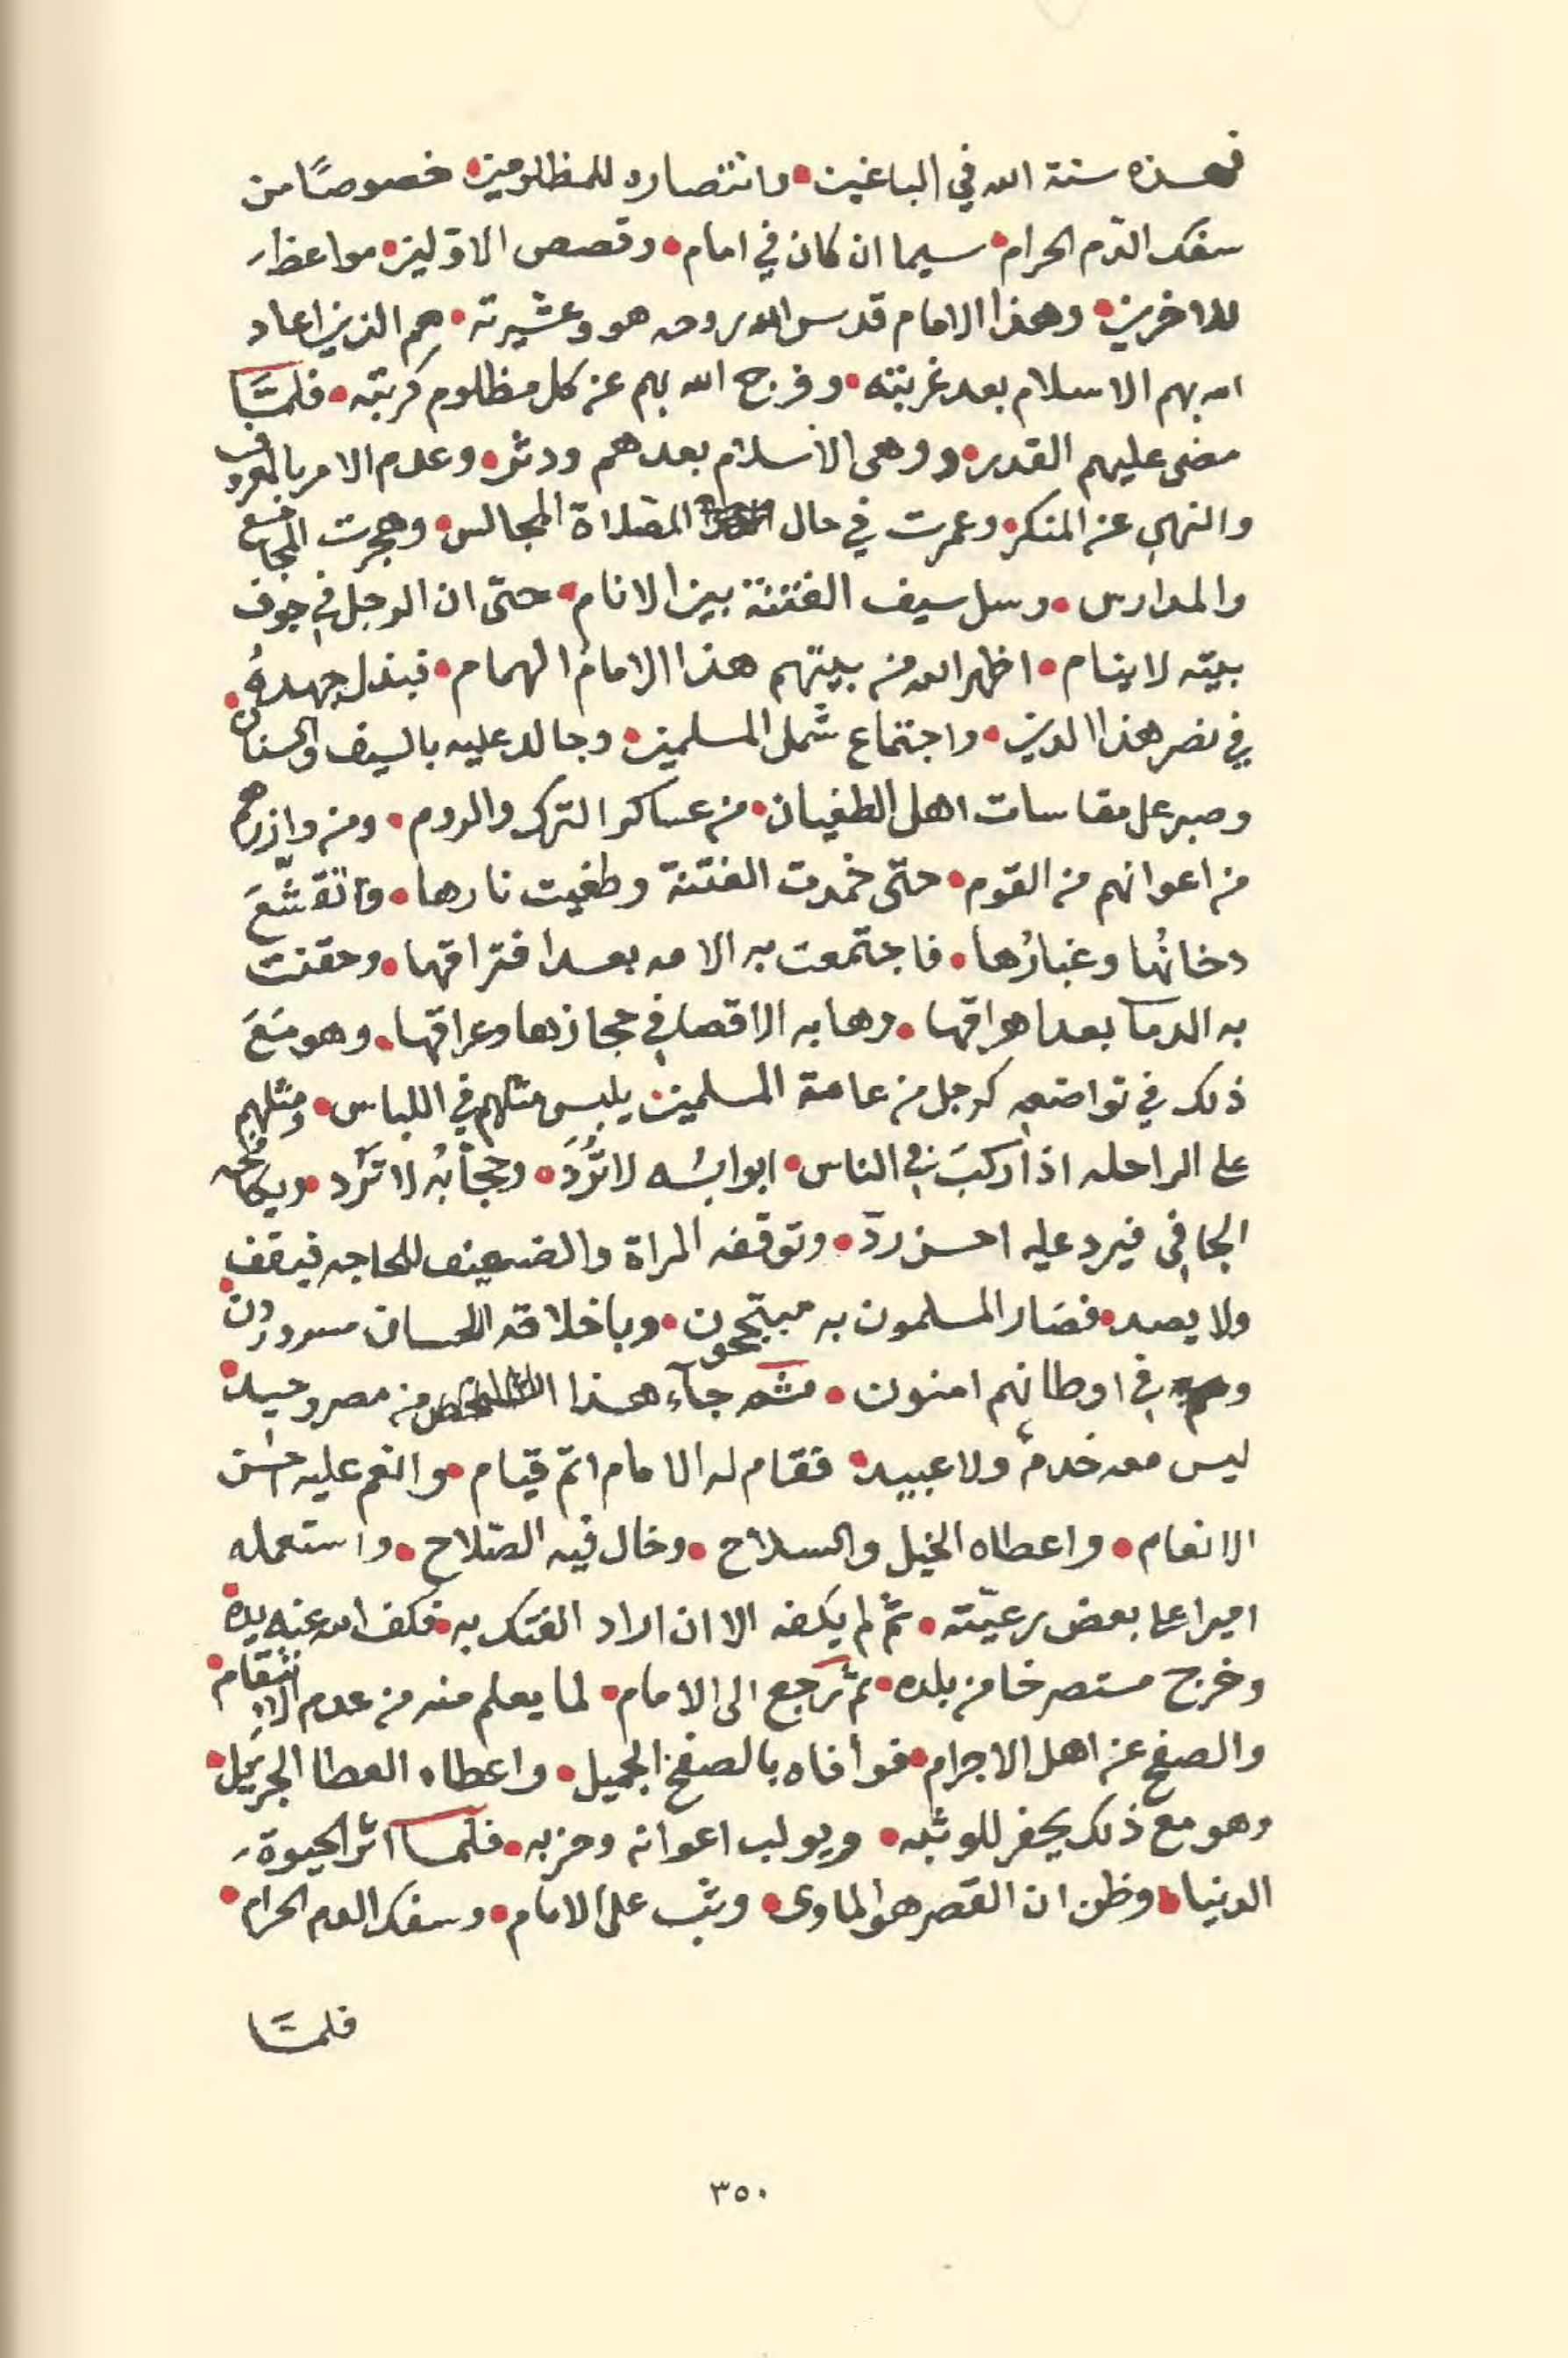 فهذه سنة الله في الباغين • وانتصاره للمظلومين • خصوصًا من
سفك الدّم الحرام • سيما ان كان في امام • وقصص الاوّلين • مواعظ
للاخرين • وهذا الامام قدس الله روحه هو وعشيرته • هم الذين اعاد
الله بهم الاسلام بعد غربته • وفرج الله بهم عن كل مظلوم كربته • فلمّا
مضى عليهم القدر • ووهى الاسلام بعدهم ودثر • وعدم الامر بالمعروف
والنهي عن المنكر • وعمرت في حال الصلاة المجالس • وهجرت المجامع
والمدارس • وسل سيف الفتنة بين الانام • حتّى ان الرجل في جوف
بيته لا ينام • اظهر الله من بيتهم هذا الامام الهمام • فبذل جهدهُ •
في نصر هذا الدين • واجتماع شمل المسلمين • وجالد عليه بالسيف والسنان
وصبر على مقاسات اهل الطغيان • من عساكر الترك والروم • ومن وازرهم
من اعوانهم من القوم • حتّى خمدت الفتنة وطفيت نارها • وانقشّعَ
دخانُها وغبارُها • فاجتمعت به الامه بعد افتراقها • وحقنت
به الدما بعد اهراقها • وهابه الاقصا في حجازها وعراقها • وهو مَعَ
ذلك في تواضعه كرجل من عامة المسلمين يلبس مثلهم في اللباس • ومثلهم
على الراحله اذا ركبَ في الناس • ابوابُه لا تُرَدّ • وحجابُه لا تَرُد • ويكافحه
الجافي فيرد عليه احسن ردّ • وتوقفه المراة والضعيف للحاجه فيقف
ولا يصد • فصَار المسلمون به مبتجحون • وباخلاقه الحسان مسرورون •
وهم في اوطانهم امنون • ثم جآء هذا الشخص من مصر وحيد •
ليس معه خدمٌ ولا عبيد • فقام له الامام اتمّ قيام • وانعم عليه احسن
الانعام • واعطاه الخيل والسلاح • وخال فيه الصّلاح • واستعمله
اميرا على بعض رعيّته • ثم لم يكفه الا ان اراد الفتك به • فكف الله عنه يده •
وخرج مستصرخا من بلده • ثم رجع الى الامام • لما يعلم منه من عدم الانتقام •
والصفح عن اهل الاجرام • فوافاه بالصفح الجميل • واعطاه العطا الجزيل •
وهو مع ذلك يحفر للوثبه • ويولب اعوانه وحزبه • فلما اثر الحيوة
الدنيا • وظن ان القصر هو الماوى • وثب على الامام • وسفك الدم الحرام •
فلمّا
٣٥٠